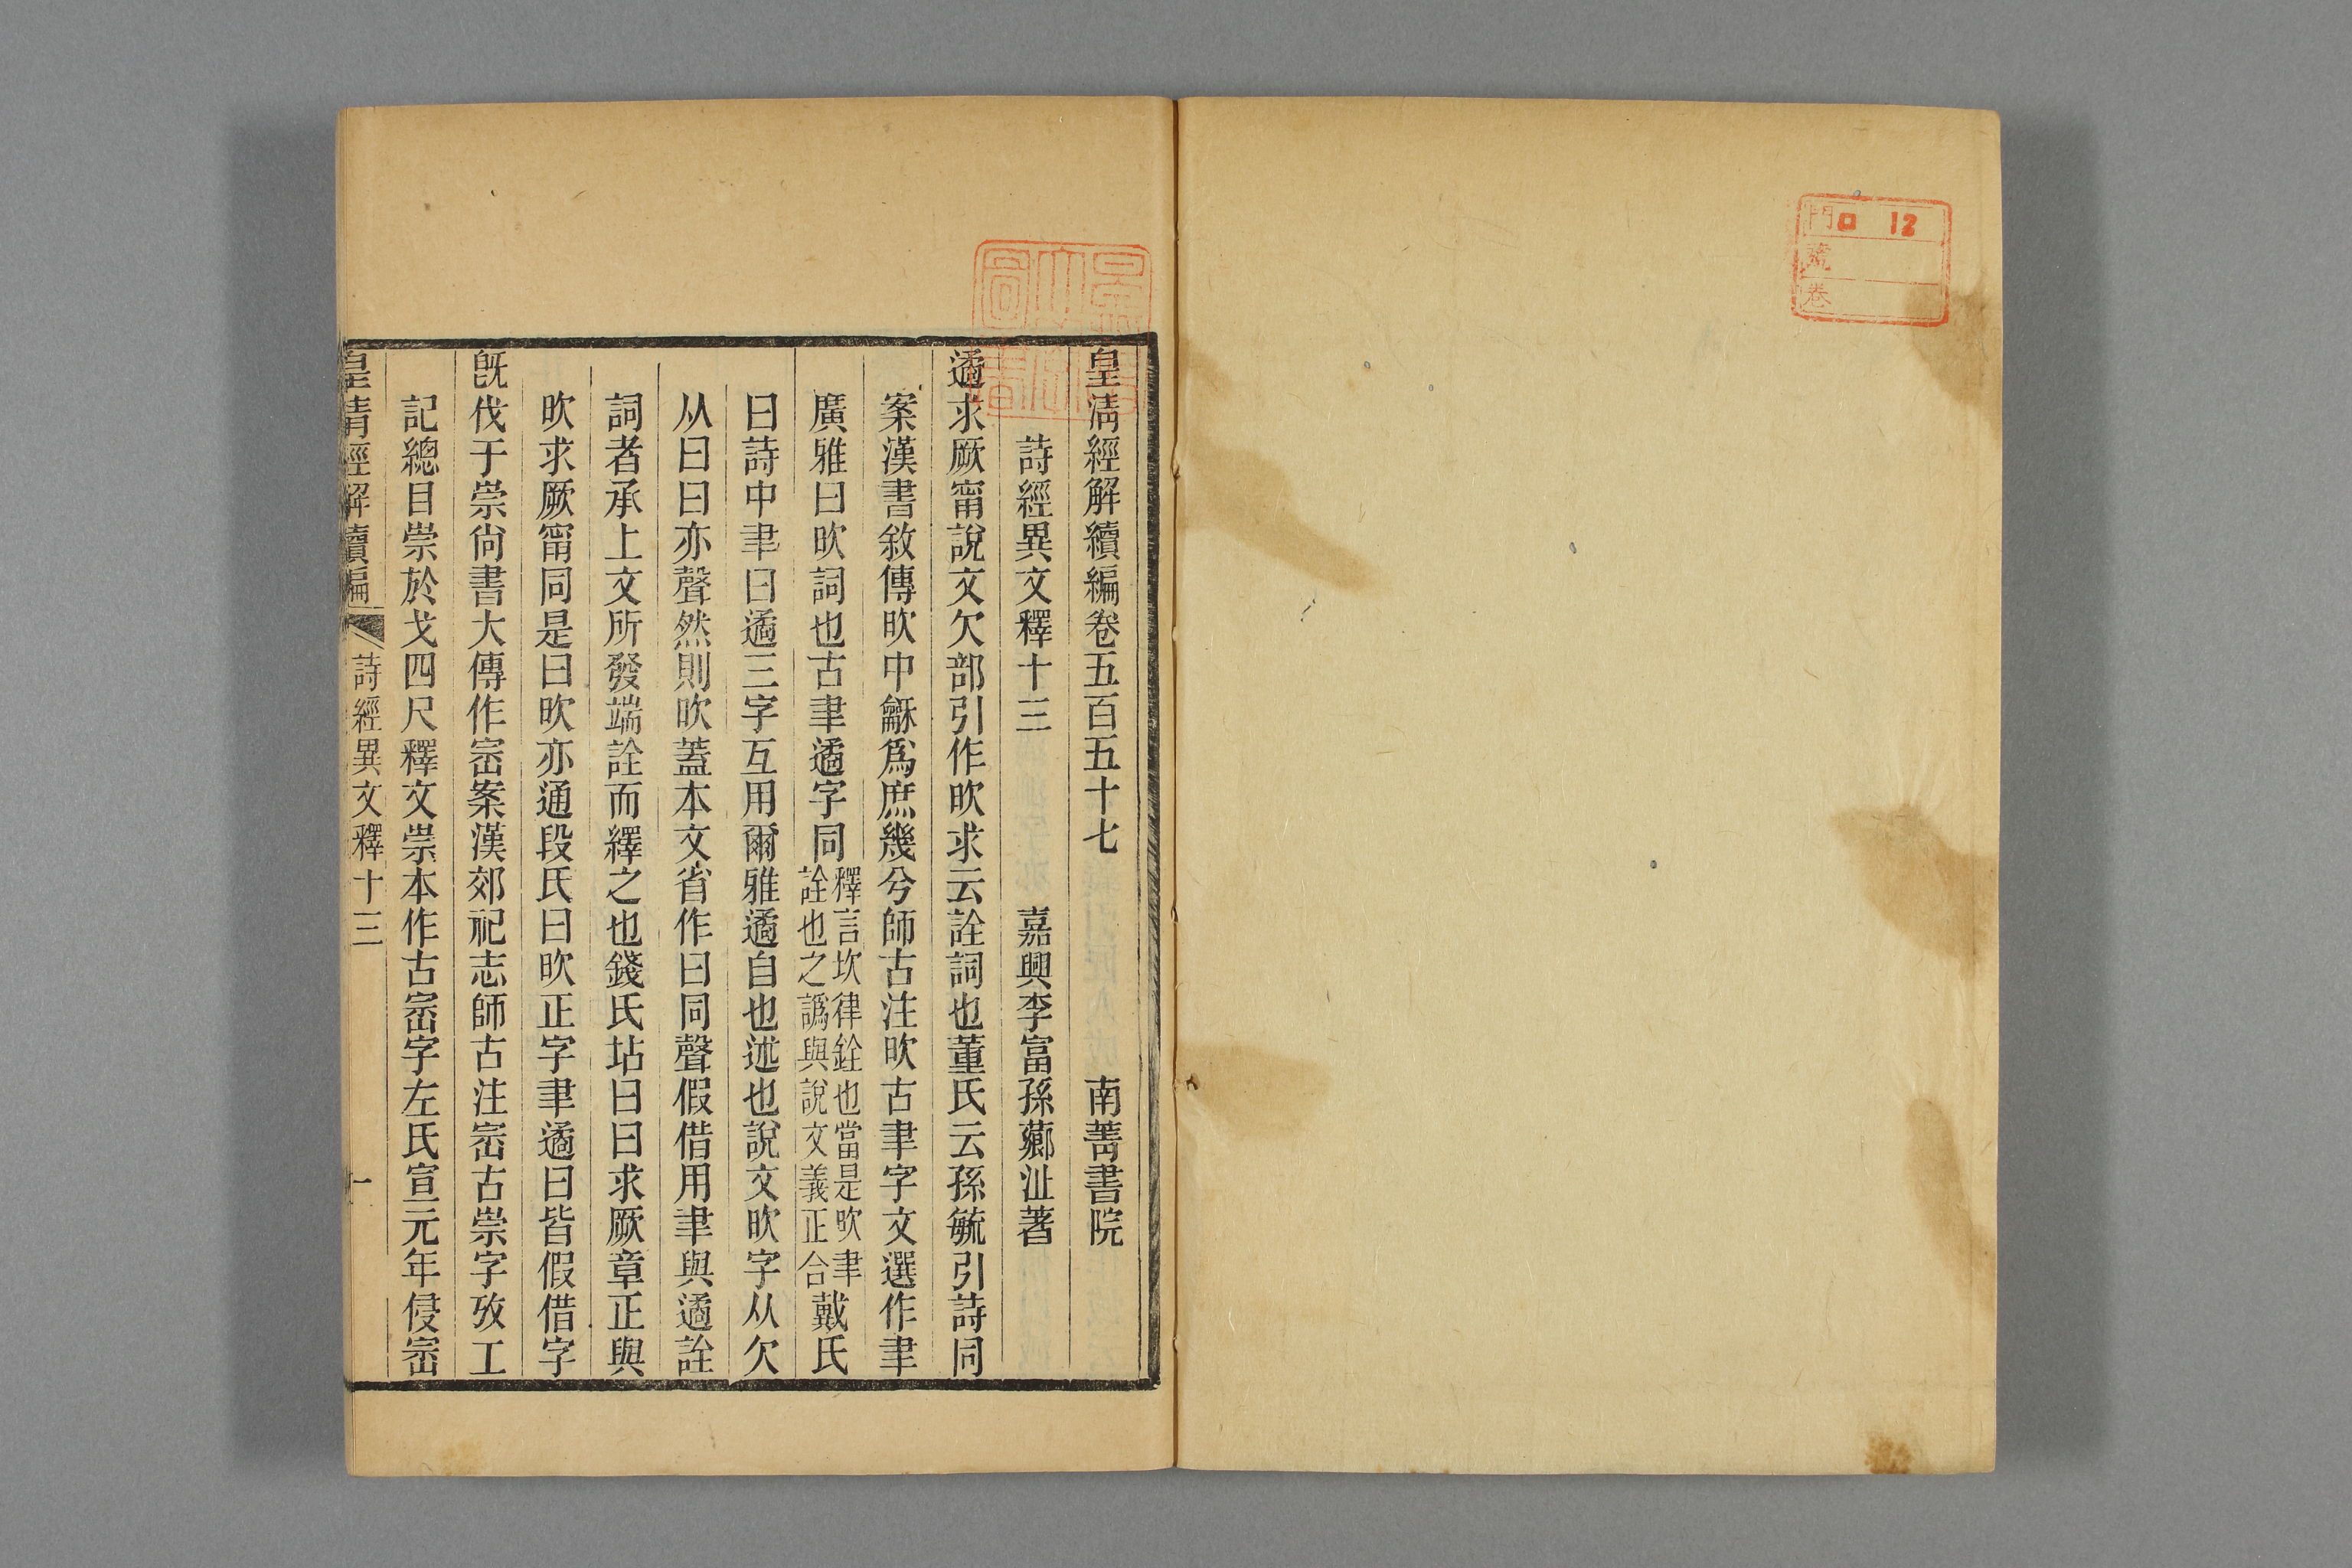 門 ロ 12
號
卷
皇淸經解續編卷五百五十七 南菁書院
詩經異文釋十三 嘉興李富孫薌沚著
遹求厥甯說文欠部引作欥求云詮詞也董氏云孫毓引詩同
案漢書敘傳欥中龢爲庶幾兮師古注欥古聿字文選作聿
廣雅曰欥詞也古聿遹字同釋言坎律銓也當是欥聿詮也之譌與說文義正合戴氏
曰詩中聿曰遹三字互用爾雅遹自也述也說文欥字从欠
从曰曰亦聲然則欥蓋本文省作曰同聲假借用聿與遹詮
詞者承上文所發端詮而繹之也錢氏坫曰曰求厥章正與
欥求厥甯同是曰欥亦通段氏曰欥正字聿遹曰皆假借字
旣伐于崇尙書大傳作崈案漢郊祀志師古注崈古崇字攷工
記總目崇於戈四尺釋文崇本作古崈字左氏宣元年侵崈
皇淸經解續編 詩經異文釋十三 一